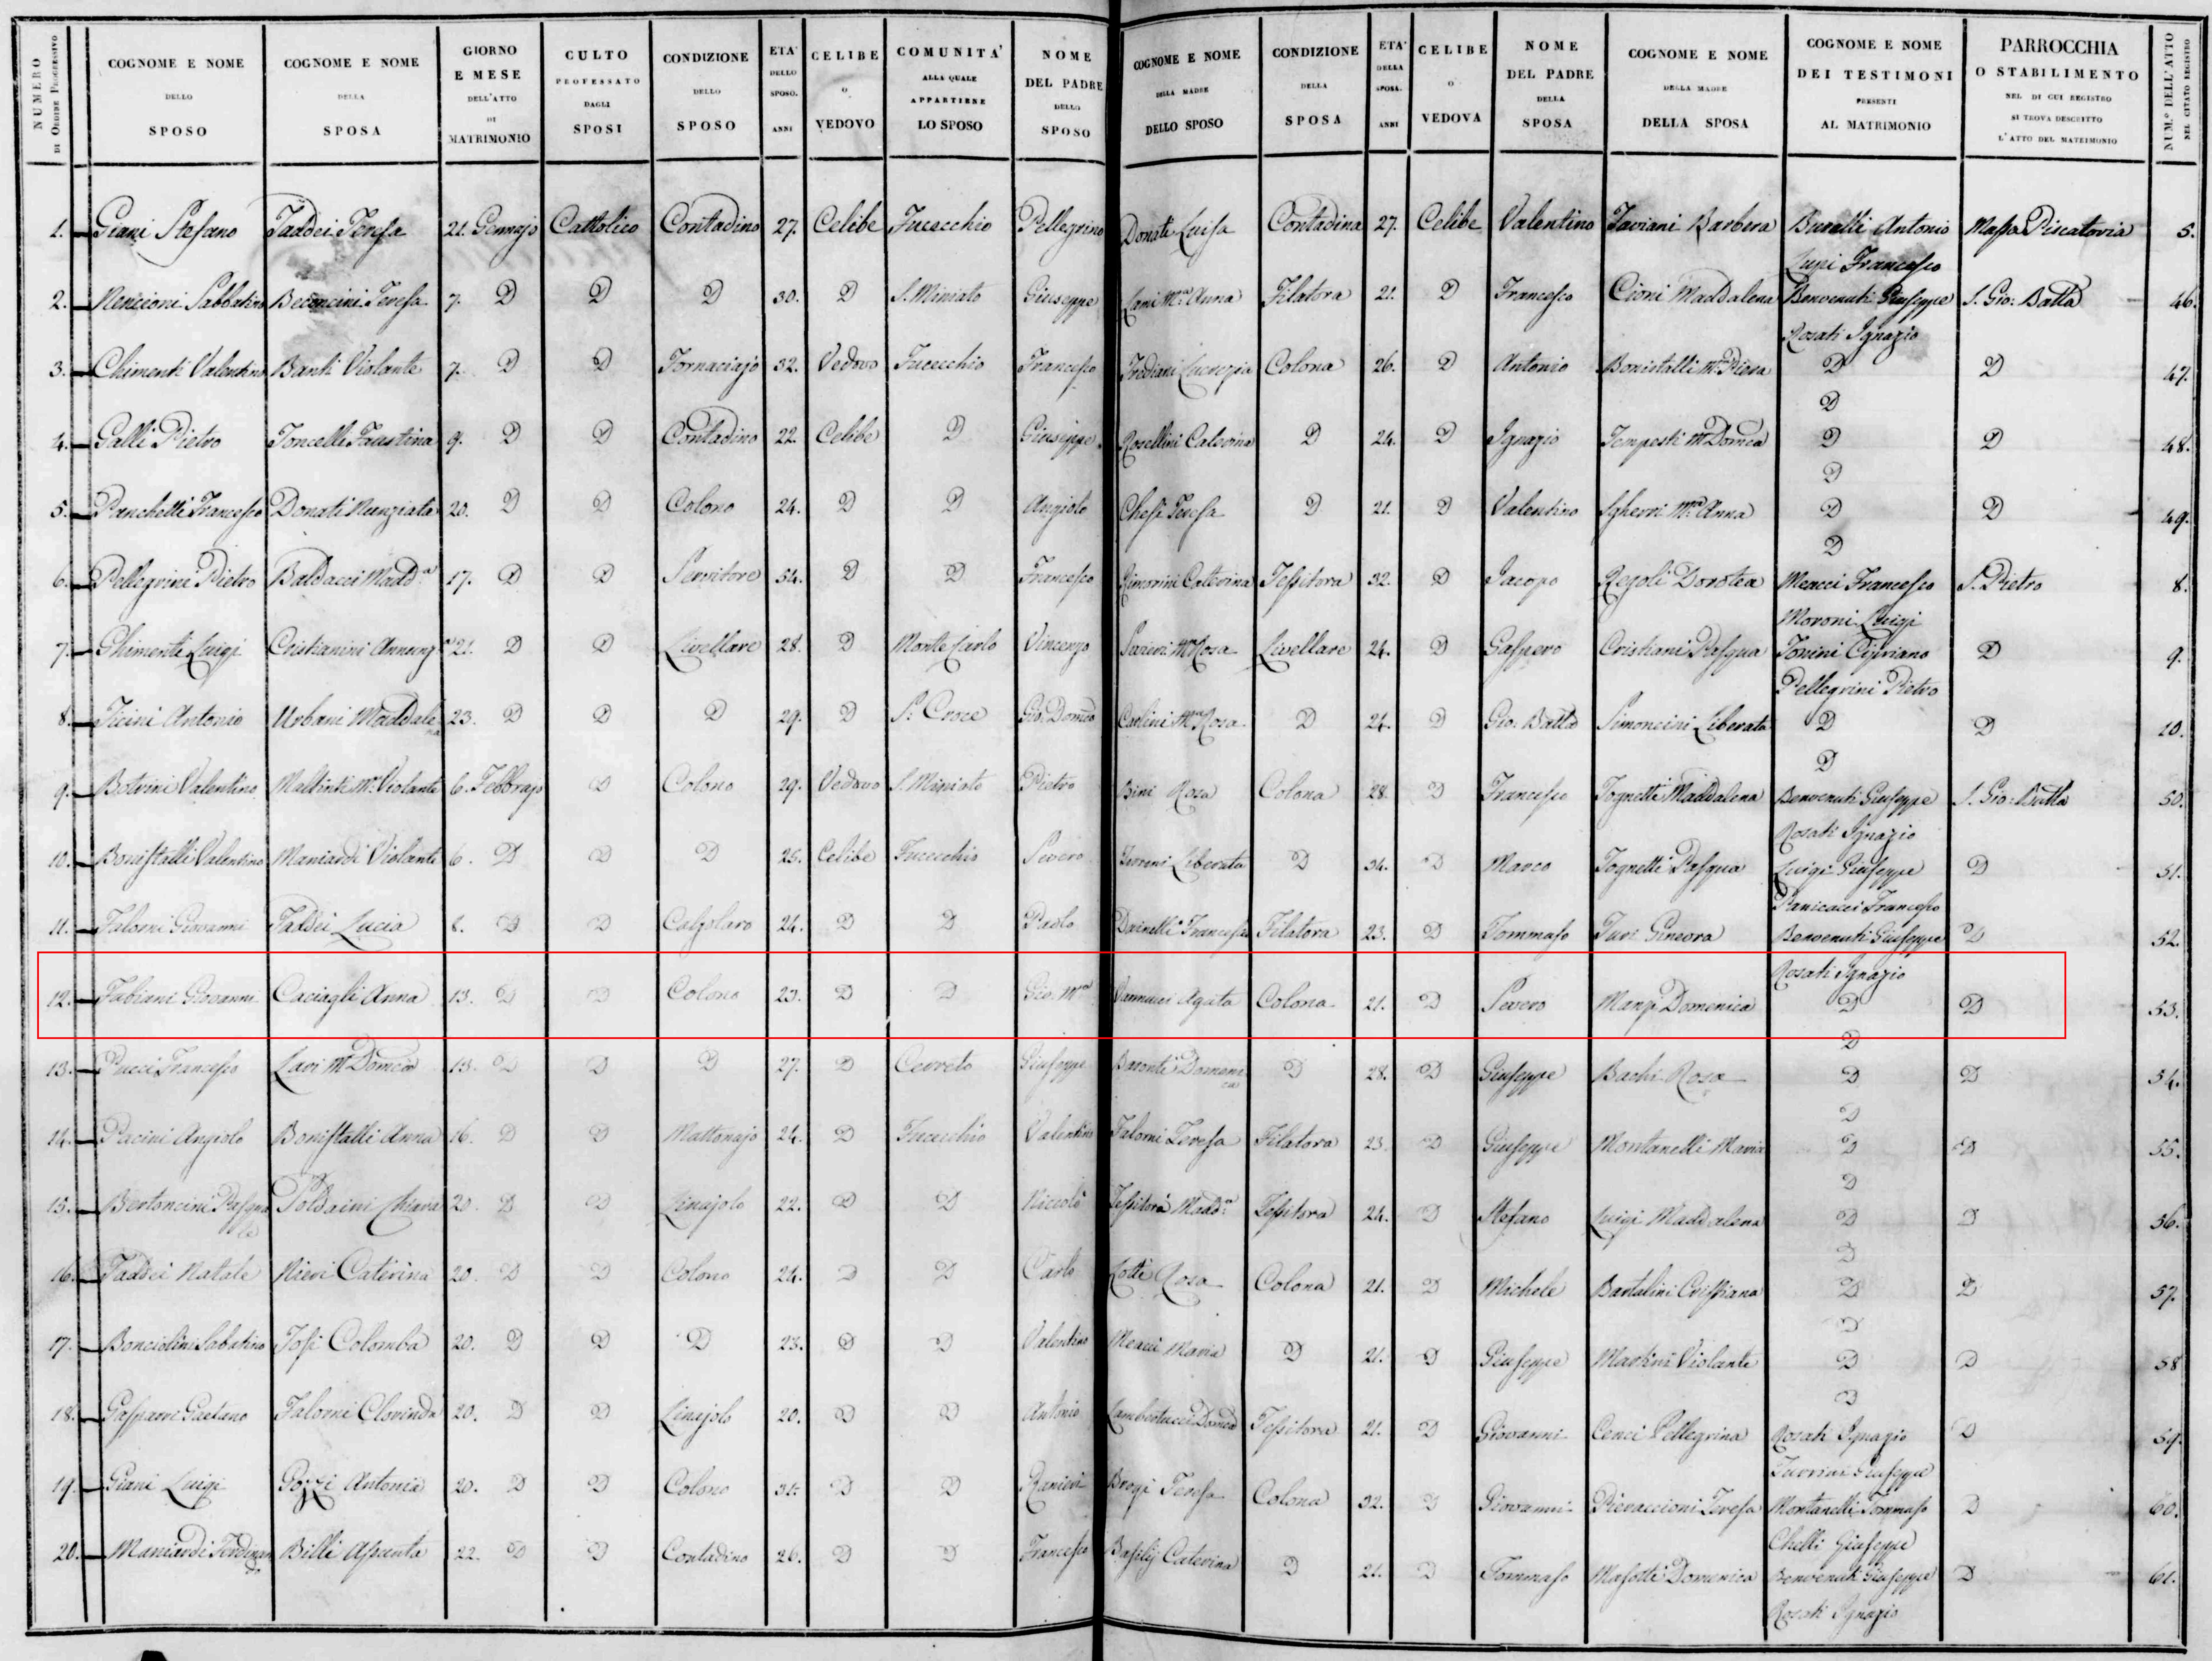 NUMERO DI ORDINE PROGRESSIVO | COGNOME E NOME DELLO SPOSO | COGNOME E NOME DELLA SPOSA | GIORNO E MESE DELL'ATTO DI MATRIMONIO | CULTO PROFESSATO DAGLI SPOSI | CONDIZIONE DELLO SPOSO | ETA' DELLO SPOSO. ANNI | CELIBE O VEDOVO | COMUNITA' ALLA QUALE APPARTIENE LO SPOSO | NOME DEL PADRE DELLO SPOSO | COGNOME E NOME DELLA MADRE DELLO SPOSO | CONDIZIONE DELLA SPOSA | ETA' DELLA SPOSA. ANNI | CELIBE O VEDOVA | NOME DEL PADRE DELLA SPOSA | COGNOME E NOME DELLA MADRE DELLA SPOSA | COGNOME E NOME DEI TESTIMONI PRESENTI AL MATRIMONIO | PARROCCHIA O STABILIMENTO NEL DI CUI REGISTRO SI TROVA DESCRITTO L'ATTO DEL MATRIMONIO | NUM.º DELL'ATTO NEL CITATO REGISTRO
1. Giani Stefano Taddei Teresa 21. Gennajo Cattolico Contadino 27. Celibe Fucecchio Pellegrino Donati Luisa Contadina 27. Celibe Valentino Taviani Barbera Burelli Antonio Massa Piscatoria 5.
Lupi Francesco
2. Nencioni Sabbatino Beconcini Teresa 7. D D D 30. D S. Miniato Giuseppe Lami Mª Anna Filatora 21. D Francesco Cioni Maddalena Benvenuti Giuseppe S. Gio: Batta 46.
Rosati Ignazio
3. Chimenti Valentino Banti Violante 7. D D Fornaciajo 32. Vedovo Fucecchio Francesco Frediani Lucrezia Colona 26. D Antonio Bonistalli Mª Piera D D 47.
D
4. Galli Pietro Toncelli Faustina 9. D D Contadino 22. Celibe D Giuseppe Rosellini Caterina D 24. D Ignazio Tempesti Mª Domca D D 48.
D
5. Panchetti Francesco Donati Nunziata 20. D D Colono 24. D D Angiolo Chesi Teresa D 21. D Valentino Sgherri Mª Anna D D 49.
D
6. Pellegrini Pietro Baldacci Madda 17. D D Servitore 54. D D Francesco Caterina Tessitora 32. D Jacopo Regoli Dorotea Meacci Francesco S. Pietro 8.
Moroni Luigi
7. Chimenti Luigi Cristianini Annunz 21. D D Livellare 28. D Monte Carlo Vincenzo Mª Rosa Livellare 24. D Gaspero Cristiani Pasqua Tonini Cipriano D 9.
Pellegrini Pietro
8. Ticini Antonio Urbani Maddalena 23. D D D 29. D S. Croce Gio: Domco Carlini Mª Rosa D 24. D Gio: Batta Simoncini Liberata D D 10.
D
9. Botrini Valentino Maltinti Mª Violante 6. Febbrajo D Colono 29. Vedovo S. Miniato Pietro Bini Rosa Colona 28. D Francesco Tognetti Maddalena Benvenuti Giuseppe S. Gio: Batta 50.
Rosati Ignazio
10. Bonistalli Valentino Maniardi Violante 6. D D D 25. Celibe Fucecchio Severo Liberata D 34. D Marco Tognetti Pasqua Luigi Giuseppe D 51.
Panicacci Francesco
11. Falorni Giovanni Taddei Lucia 8. D D Calzolaro 24. D D Paolo Dainelli Francesca Filatora 23. D Tommaso Turi Ginevra Benvenuti Giuseppe D 52.
Rosati Ignazio
12. Fabiani Giovanni Caciagli Anna 13. D D Colono 23. D D Gio. Mª Vannucci Agata Colona 21. D Severo Manzi Domenica D D 53.
D
13. Pucci Francesco Lari Mª Domca 13. D D D 27. D Cerreto Giuseppe Baronti Domenica D 28. D Giuseppe Bachi Rosa D D 54.
D
14. Pacini Angiolo Bonistalli Anna 16. D D Mattonajo 24. D Fucecchio Valentino Falorni Teresa Filatora 23. D Giuseppe Montanelli Maria D D 55.
D
15. Bertoncini Pasquale Soldaini Chiara 20. D D Linajolo 22. D D Niccolò Tessitora Madda Tessitora 24. D Stefano Luigi Maddalena D D 56.
D
16. Taddei Natale Nieri Caterina 20. D D Colono 24. D D Carlo Lotti Rosa Colona 21. D Michele Bartalini Crispiana D D 57.
D
17. Bonciolini Sabatino Tosi Colomba 20. D D D 23. D D Valentino Meacci Maria D 21. D Giuseppe Martini Violante D D 58
D
18. Gasparri Gaetano Falorni Clorinda 20. D D Linajolo 20. D D Antonio Lambertucci Domca Tessitora 21. D Giovanni Cenci Pellegrina Rosati Ignazio D 59.
Giuseppe
19. Giani Luigi Pozzi Antonia 20. D D Colono 31. D D Ranieri Brogi Teresa Colona 32. D Giovanni Pieraccioni Teresa Montanelli Tommaso D 60.
Chelli Giuseppe
20. Maniardi Ferdinando Billi Assunta 22. D D Contadino 26. D D Francesco Basilij Caterina D 21. D Tommaso Masotti Domenica Benvenuti Giuseppe D 61.
Rosati Ignazio